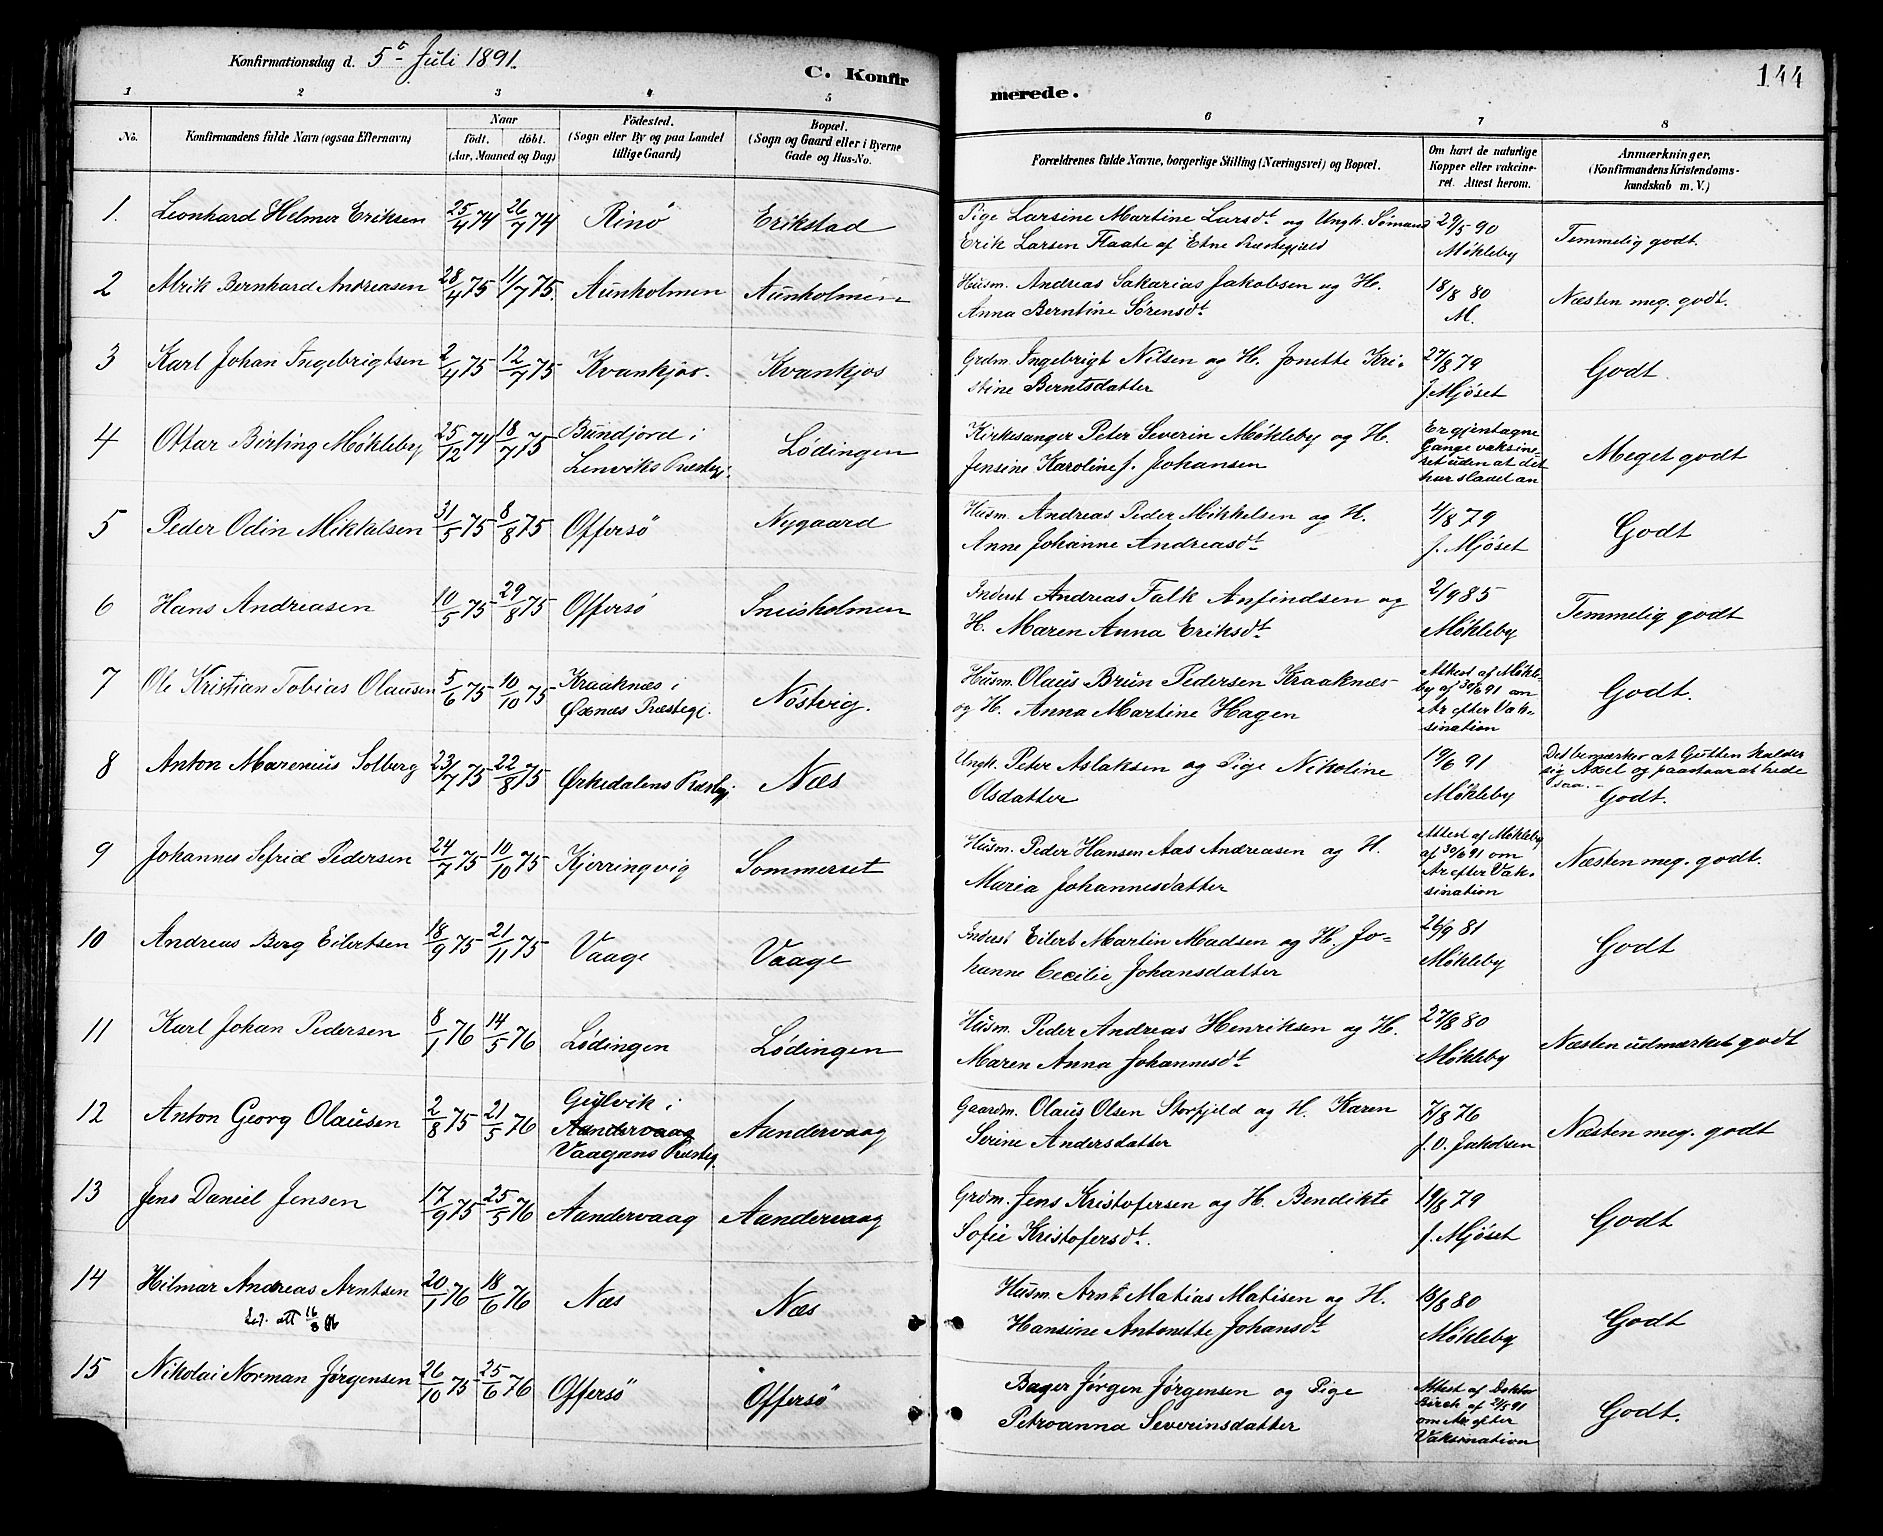 Konfirmationsdag d. 5te Juli 1891.
C. Konfir
merede.
144
1 2 3 4 5 6 7 8
No.
Konfirmandens fulde Navn (ogsaa Efternavn)
Naar
födt. döbt.
(Aar, Maaned og Dag)
Födested.
(Sogn eller By og paa Landet
tillige Gaard)
Bopæl.
(Sogn og Gaard eller i Byerne
Gade og Hus-No.
Forældrenes fulde Navne, borgerlige Stilling (Næringsvei) og Bopæl.
Om havt de naturlige
Kopper eller vakcine-
ret. Attest herom.
Anmærkninger.
(Konfirmandens Kristendoms-
kundskab m. V.)
1. Leonhard Helmer Eriksen 25/4 74 26/7 74 Rinö Erikstad
Pige Larsine Martine Larsdt og Ungk. Sømand 29/5-90
Erik Larsen Flaate af Etne Præstegjeld Møkleby
Temmelig godt.
2 Alrik Bernhard Andreasen 28/4 75 11/7 75. Aunholmen Aunholmen
Husm. Andreas Sakarias Jakobsen og H. 18/8 80
Anna Berntine Sørensdt M.
Næsten meg. godt.
3 Karl Johan Ingebrigtsen 2/4 75 12/7 75 Kvankjos. Kvankjos
Grdm. Ingebrigt Nilsen og H. Jonette Kri- 27/8 79
stine Berntsdatter J. Mjøset
Godt.
4 Ottar Birting Møkleby 25/12 74 18/7 75 Bundjord i
Lenviks Præstegj. Lødingen
Kirkesanger Peter Severin Møkleby og H.
Jensine Karoline f. Johansen
Er gjentagne
Gange vaksine-
ret uden at det
har slaaet an
Meget godt
5 Peder Odin Mikkalsen 31/5 75 8/8 75 Offersö Nygaard
Husm. Andreas Peder Mikkelsen og H. 4/8 79
Anne Johanne Andreasdt J. Mjøset
Godt
6 Hans Andreasen 10/5 75 29/8 75 Offersö Sneisholmen
Inderst Andreas Falk Anfindsen og 2/9 85
H. Maren Anna Eriksdt Møkleby
Temmelig godt
7 Ole Kristian Tobias Olausen 5/6 75 10/10 75 Kraaknæs i
Øxnæs Præstegj. Nöstvig.
Husm Olaus Brun Pedersen Kraaknæs
og H. Anna Martine Hagen
Attest af Møkle-
by af 30/6 91 om
Ar efter Vak-
sination
Godt.
8 Anton Marenius Solberg 23/7 75 22/8 75 Ørkedalens Præstegj. Næs
Ungk. Peter Aslaksen og Pige Nikoline 19/6 91
Olsdatter Møkleby
Det bemærkes at Gutten kalder
sig Axel og paastaar at hede
saa.-
Godt.
9 Johannes Sefrid Pedersen 24/7 75 10/10 75 Kjerringvig Sommerset
Husm. Peder Hansen Aas Andreasen og H.
Maria Johannesdatter
Attest af Møkleby
af 30/6 91 om
Ar efter Vak-
sination
Næsten meg. godt.
10 Andreas Berg Eilertsen 18/9 75 21/11 75 Vaage Vaage
Inderst Eilert Martin Madsen og H. Jo- 26/9 81
hanne Cecilie Johansdatter Møkleby
Godt
11 Karl Johan Pedersen 8/1 76 14/5 76 Lødingen Lødingen
Husm. Peder Andreas Henriksen og H. 27/8 80
Maren Anna Johannesdt Møkleby
Næsten udmærket godt
12 Anton Georg Olausen 2/8 75 21/5 76 Geilvik i
Aandervaag
Vaagans Præsteg. Aandervaag
Gaardm. Olaus Olsen Storfjeld og H. Karen 7/8 76
Serine Andersdatter J. O. Jakobsen
Næsten meg. godt
13 Jens Daniel Jensen 17/9 75 25/5 76 Aandervaag Aandervaag
Grdm. Jens Kristofersen og H. Bendikte 19/8 79
Sofie Kristofersdt. J. Mjöset
Godt
14 Hilmar Andreas Arntsen 20/1 76 18/6 76 Næs Næs
Husm. Arnt Matias Matisen og H. 18/8 80
Hansine Antonette Johansdt Møkleby
Godt
15 Nikolai Norman Jørgensen 26/10 75 25/6 76 Offersö Offersö
Bager Jørgen Jørgensen og Pige
Petroanna Severinsdatter
Attest af Doktor
Birch af 2/5 91
om Ar efter
Vaksination
Godt.